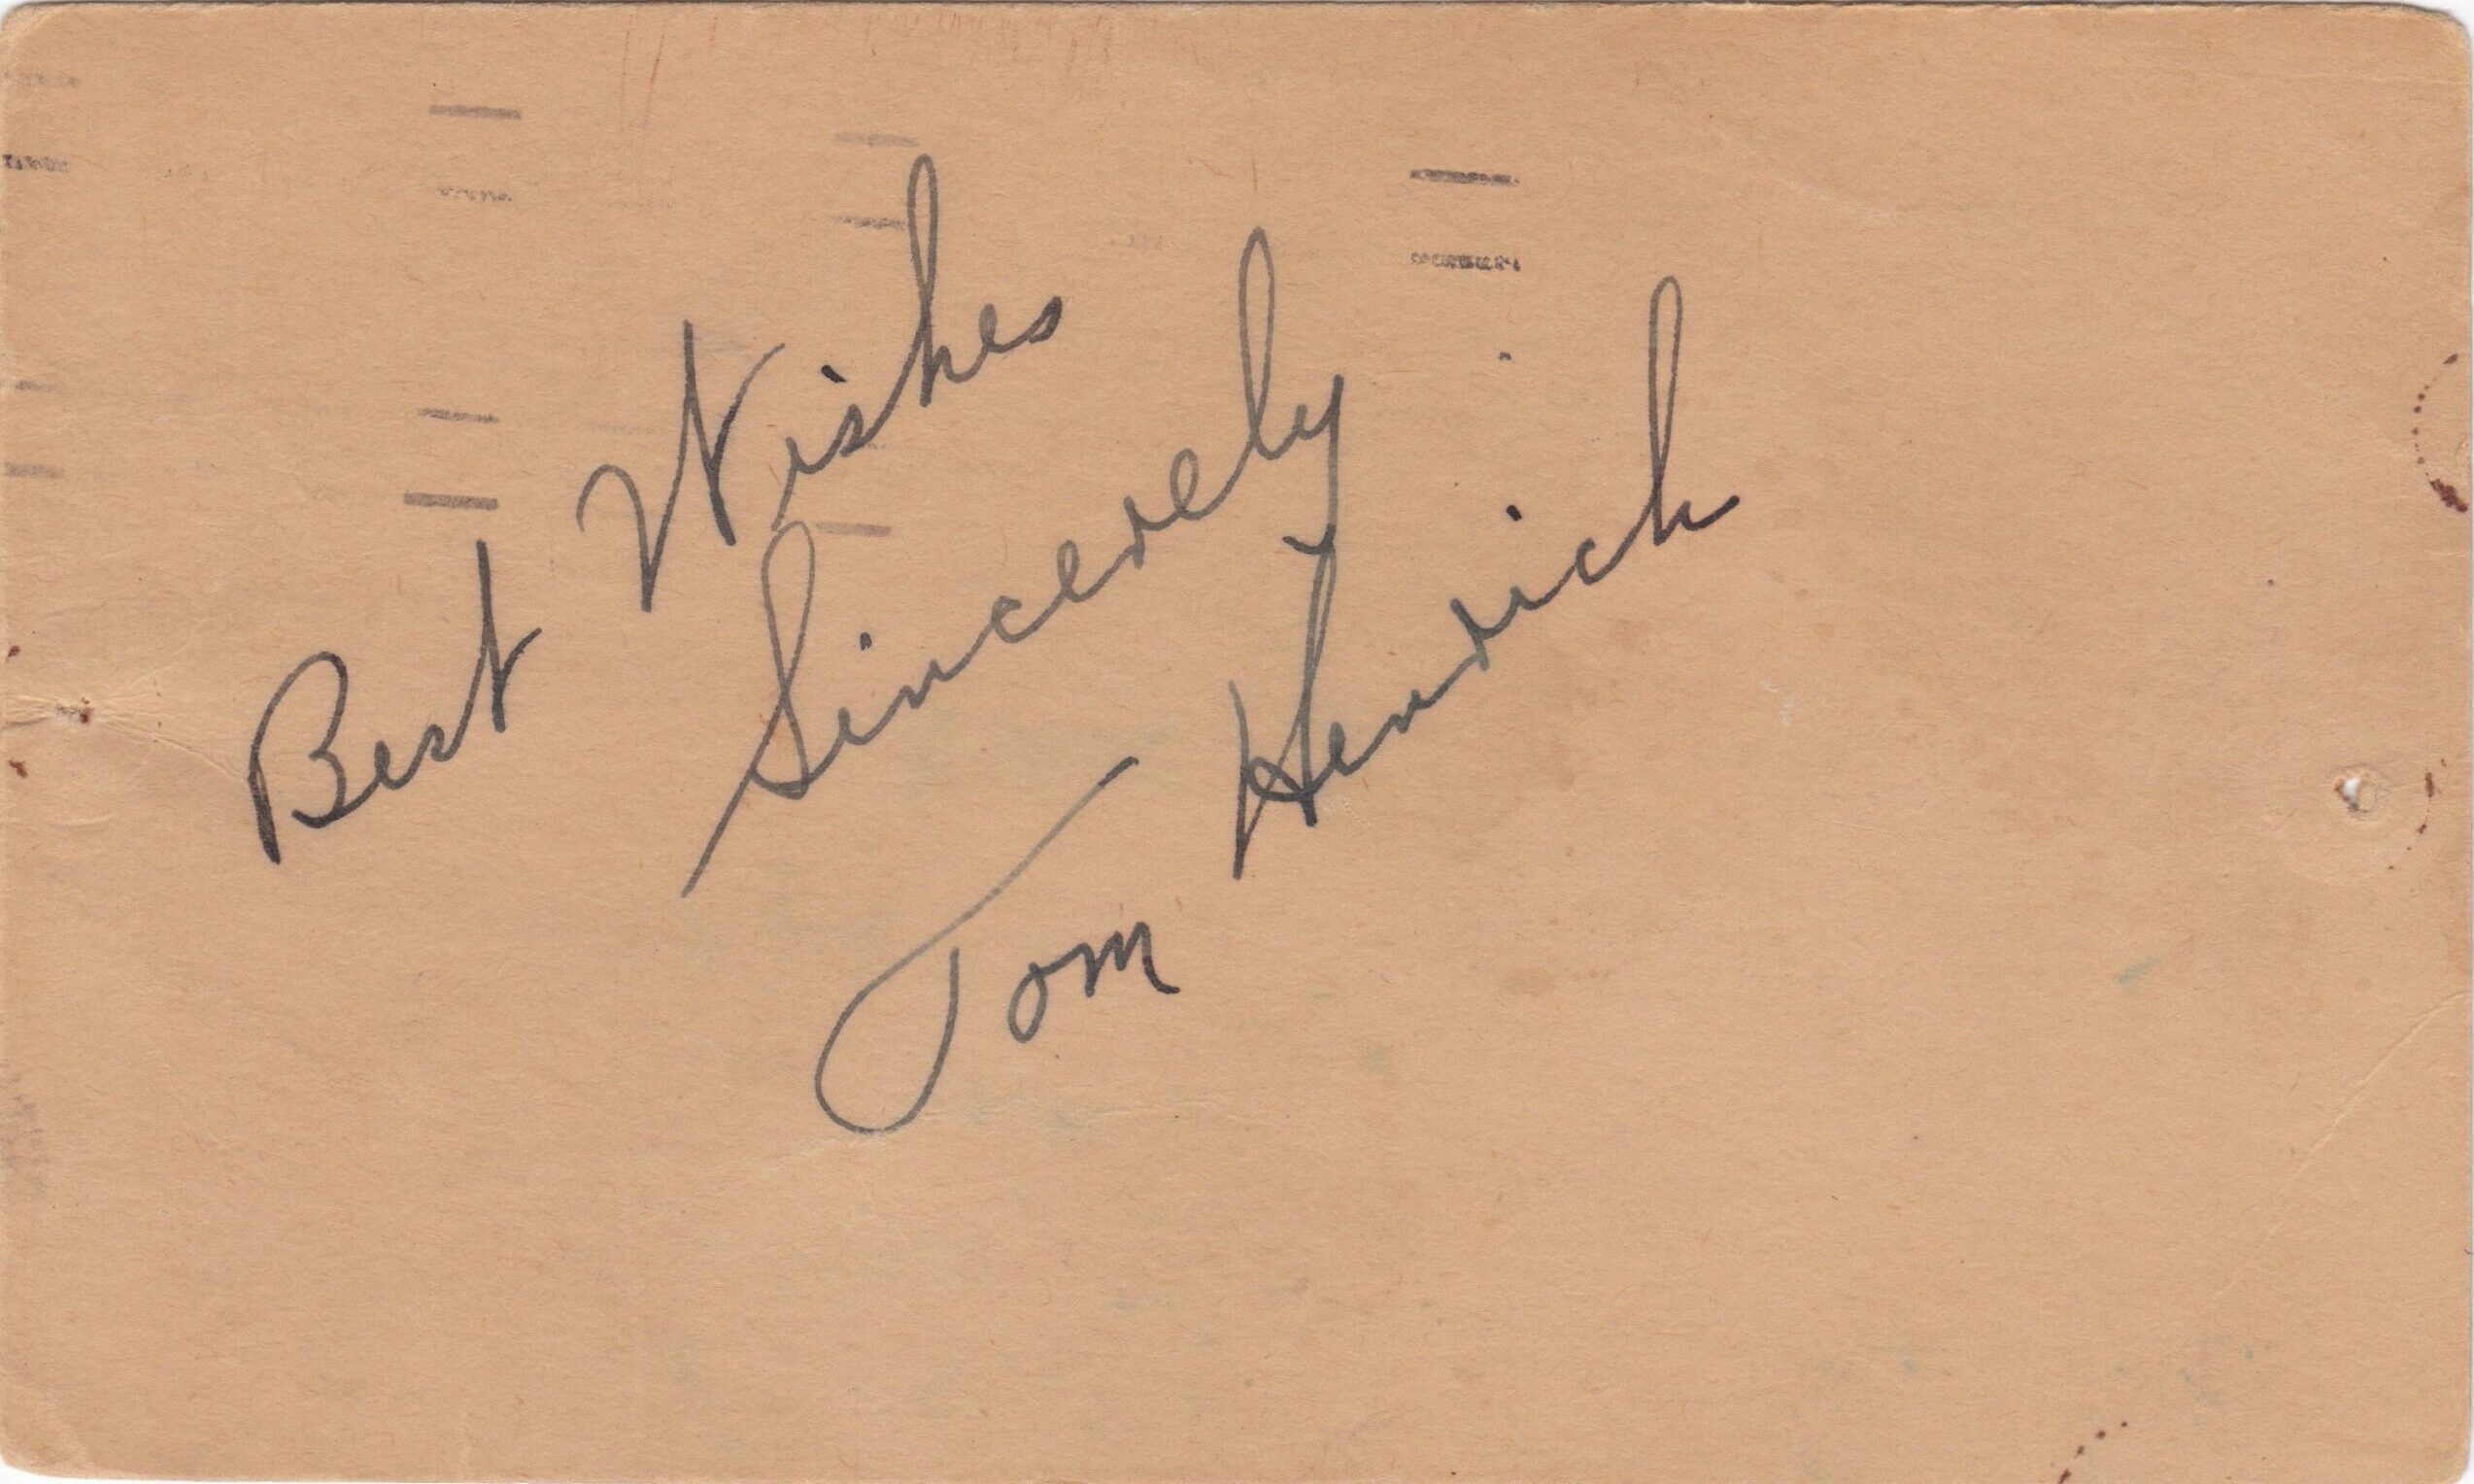 Best Wishes
Sincerely
Tom Henrich